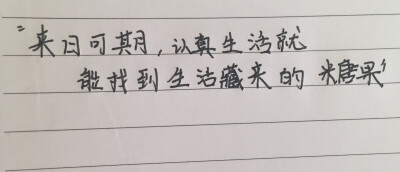 “来日可期，认真生活就
能找到生活藏来的糖果”